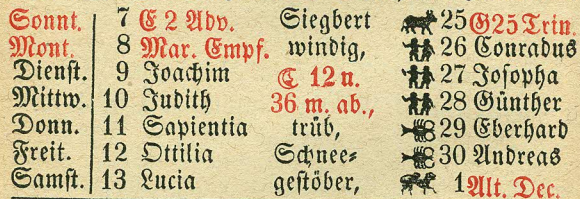 Sonnt. 7 E 2 Adv. Siegbert 25 G25Trin.
Mont. 8 Mar. Empf. windig, 26 Conradus
Dienst. 9 Joachim ☾ 12 n. 27 Josopha
Mittw. 10 Judith 36 m. ab., 28 Günther
Donn. 11 Sapientia trüb, 29 Eberhard
Freit. 12 Ottilia Schnee= 30 Andreas
Samst. 13 Lucia gestöber, 1 Alt. Dec.